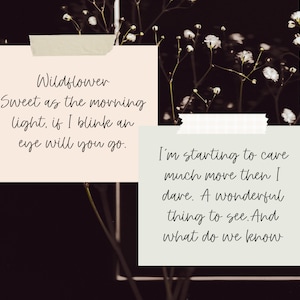 Wildflower
Sweet as the morning
light, if I blink an
eye will you go.
I'm starting to care
much more then I
dare. A wonderful
thing to see.And
what do we know